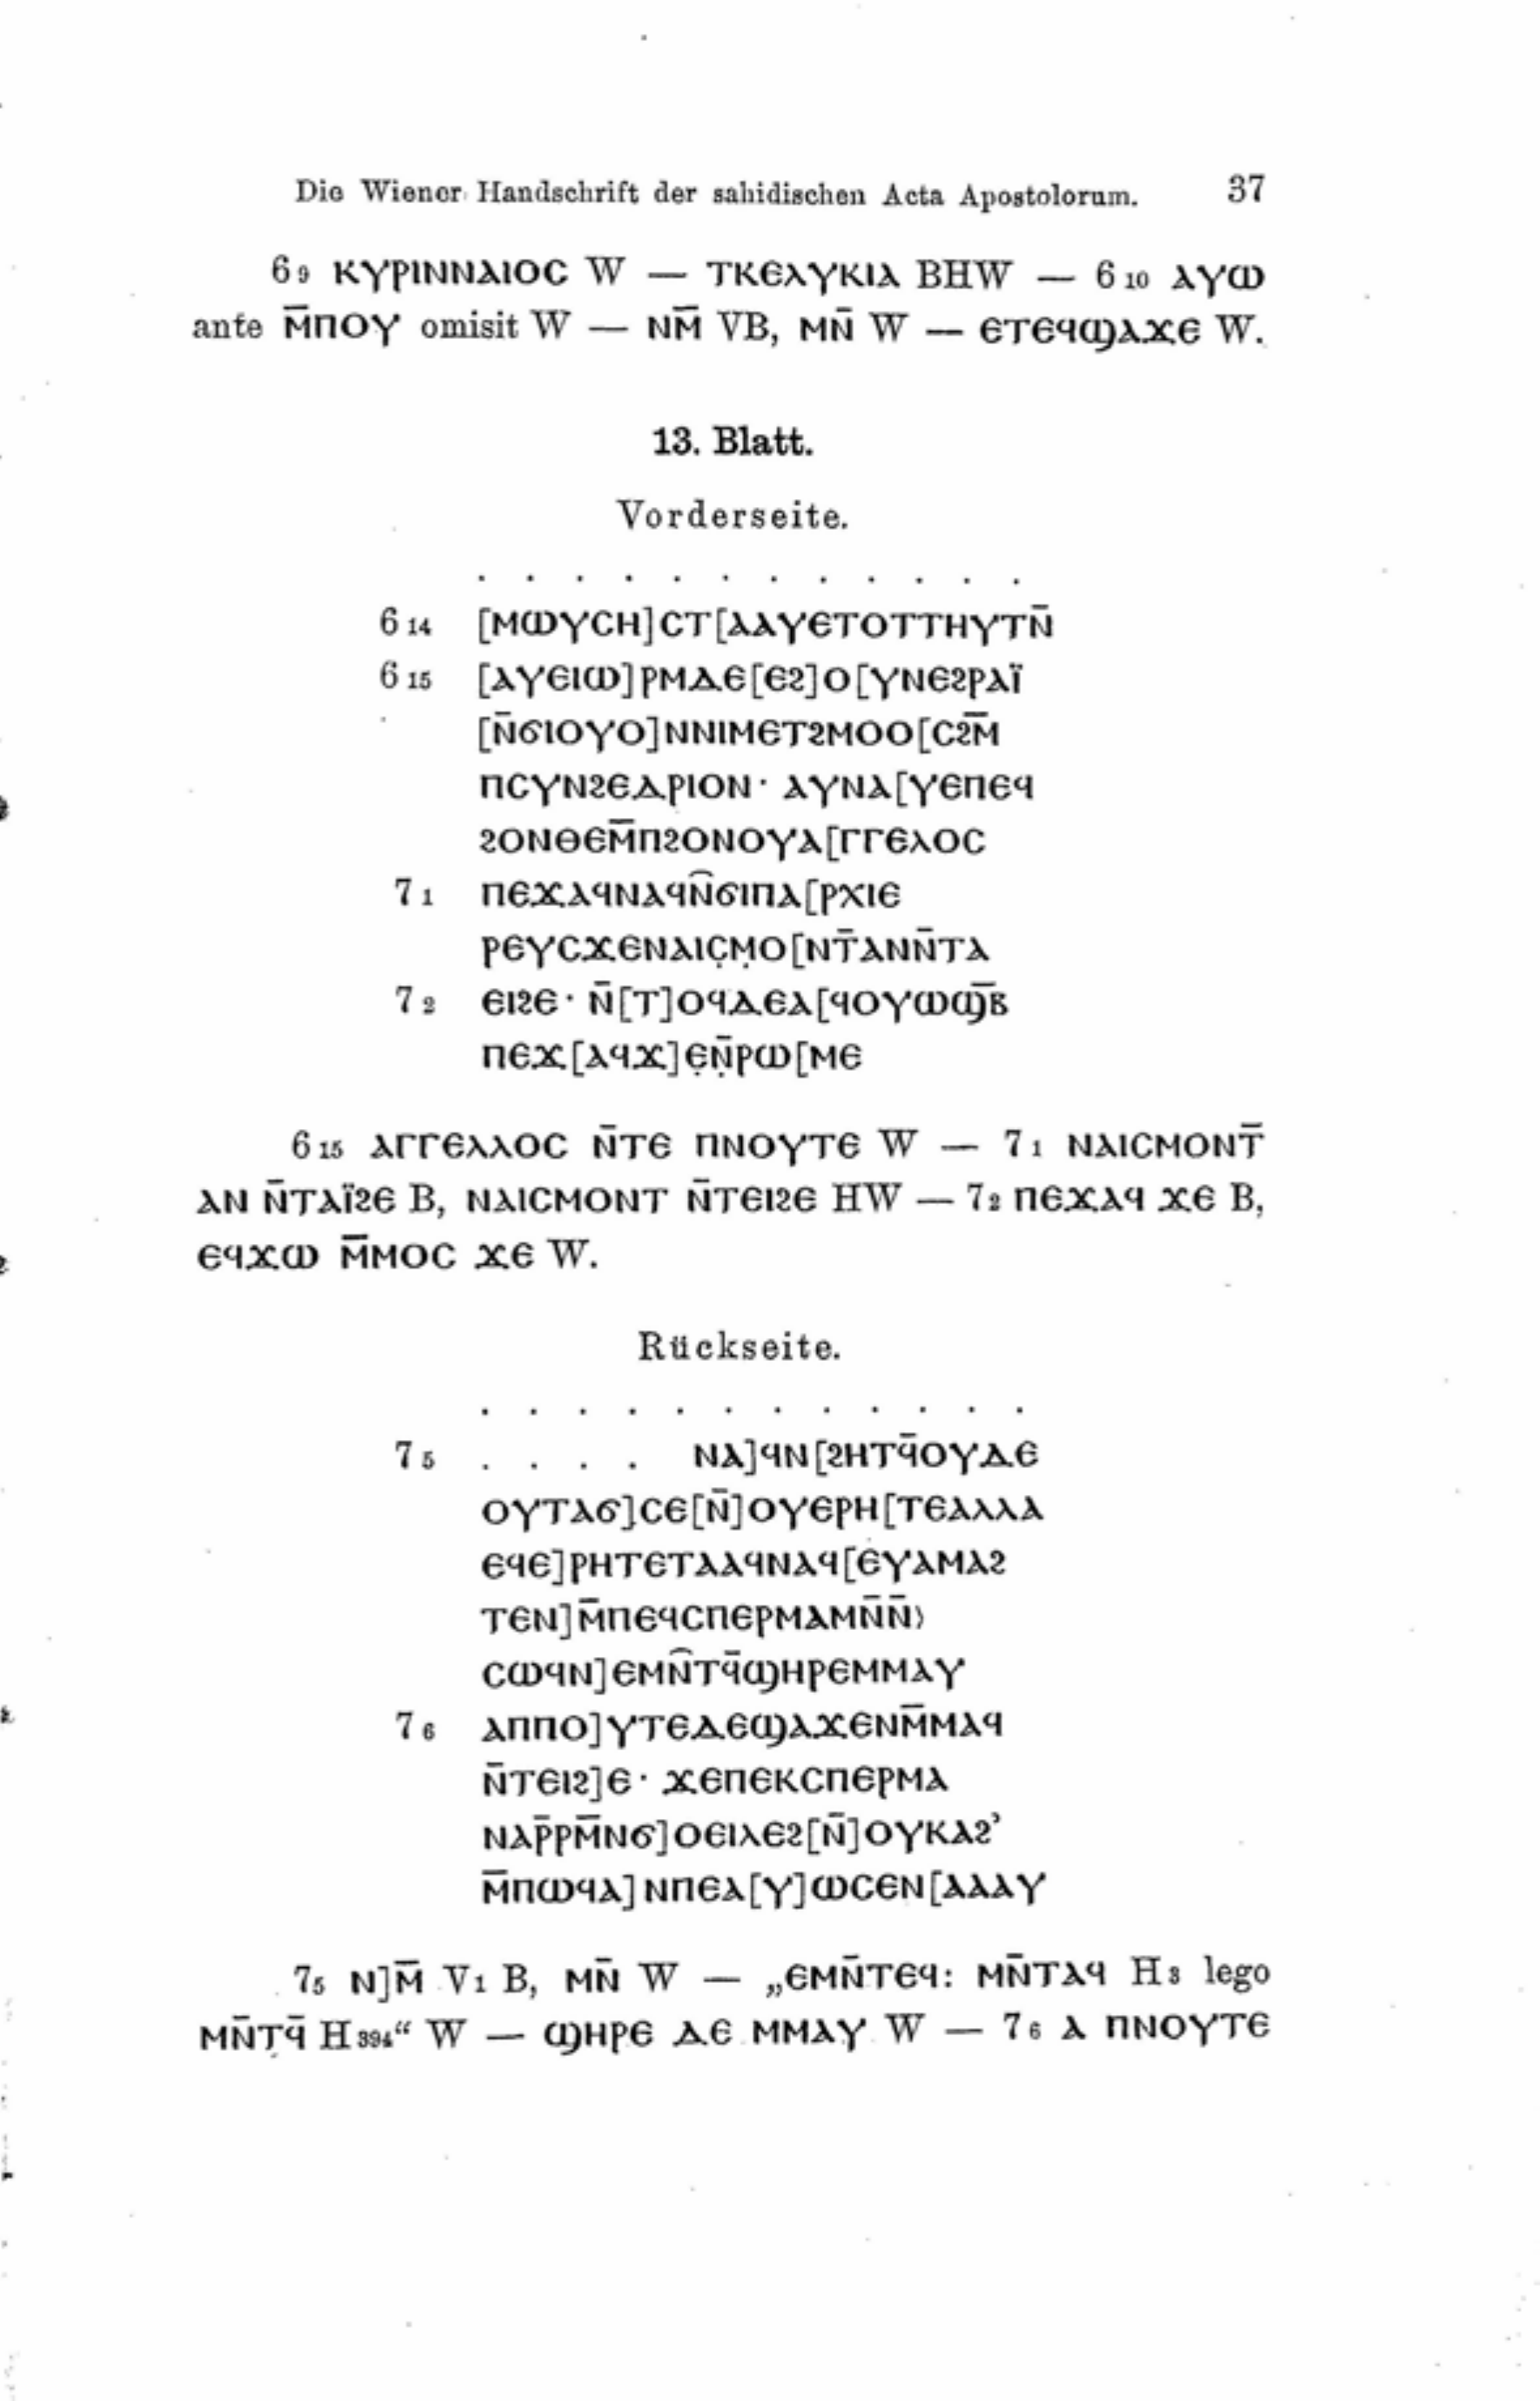 Die Wiener Handschrift der sahidischen Acta Apostolorum. 37
6 9 ⲔⲨⲢⲒⲚⲚⲀⲒⲞⲤ W — ⲦⲔⲈⲗⲨⲔⲒⲀ BHW — 6 10 ⲀⲨⲰ
ante Ⲙ̄ⲠⲞⲨ omisit W — ⲚⲘ̄ VB, ⲘⲚ̄ W — ⲈⲦⲈϤϢⲀϪⲈ W.
13. Blatt.
Vorderseite.
. . . . . . . . . . . .
6 14 [ⲘⲰⲨⲤⲎ]ⲤⲦ[ⲀⲀⲨⲈⲦⲞⲦⲦⲎⲨⲦⲚ̄
6 15 [ⲀⲨⲈⲒⲰ]ⲢⲘⲆⲈ[ⲈϨ]Ⲟ[ⲨⲚⲈϨⲢⲀⲒ̈
[Ⲛ̄ϬⲒⲞⲨⲞ]ⲚⲚⲒⲘⲈⲦϨⲘⲞⲞ[ⲤϨⲘ̄
ⲠⲤⲨⲚϨⲈⲆⲢⲒⲞⲚ· ⲀⲨⲚⲀ[ⲨⲈⲠⲈϤ
ϨⲞⲚⲐⲈⲘ̄ⲠϨⲞⲚⲞⲨⲀ[ⲄⲄⲈⲖⲞⲤ
7 1 ⲠⲈϪⲀϤⲚⲀϤⲚ̑ϬⲒⲠⲀ[ⲢⲬⲒⲈ
ⲢⲈⲨⲤϪⲈⲚⲀⲒⲤ̣Ⲙ̣Ⲟ[ⲚⲦ̄ⲀⲚⲚ̄ⲦⲀ
7 2 ⲈⲒϨⲈ· Ⲛ̄[Ⲧ]ⲞϤⲆⲈⲀ[ϤⲞⲨⲰϢ̄Ⲃ
ⲠⲈϪ[ⲀϤϪ]Ⲉ̣Ⲛ̣̄ⲢⲰ[ⲘⲈ
6 15 ⲀⲄⲄⲈⲖⲖⲞⲤ Ⲛ̄ⲦⲈ ⲠⲚⲞⲨⲦⲈ W — 7 1 ⲚⲀⲒⲤⲘⲞⲚⲦ̄
ⲀⲚ Ⲛ̄ⲦⲀⲒ̈ϨⲈ B, ⲚⲀⲒⲤⲘⲞⲚⲦ Ⲛ̄ⲦⲈⲒϨⲈ HW — 7 2 ⲠⲈϪⲀϤ ϪⲈ B,
ⲈϤϪⲰ Ⲙ̄ⲘⲞⲤ ϪⲈ W.
Rückseite.
. . . . . . . . . . . .
7 5 . . . . ⲚⲀ]ϤⲚ[ϨⲎⲦϤ̄ⲞⲨⲆⲈ
ⲞⲨⲦⲀϬ]ⲤⲈ[Ⲛ̄]ⲞⲨⲈⲢⲎ[ⲦⲈⲀⲖⲖⲀ
ⲈϤⲈ]ⲢⲎⲦⲈⲦⲀⲀϤⲚⲀϤ[ⲈⲨⲀⲘⲀϨ
ⲦⲈⲚ]Ⲙ̄ⲠⲈϤⲤⲠⲈⲢⲘⲀⲘⲚ̄Ⲛ̄⟩
ⲤⲰϤⲚ]ⲈⲘⲚ̑ⲦϤ̄ϢⲎⲢⲈⲘⲘⲀⲨ
7 6 ⲀⲠⲠⲞ]ⲨⲦⲈⲆⲈϢⲀϪⲈⲚⲘ̄ⲘⲀϤ
Ⲛ̄ⲦⲈⲒϨ]Ⲉ· ϪⲈⲠⲈⲔⲤⲠⲈⲢⲘⲀ
ⲚⲀⲢ̄ⲢⲘ̄ⲚϬ]ⲞⲈⲒⲖⲈϨ[Ⲛ̄]ⲞⲨⲔⲀϨ’
Ⲙ̄ⲠⲰϤⲀ]ⲚⲠⲈⲀ[Ⲩ]ⲰⲤⲈⲚ[ⲀⲀⲀⲨ
7 5 Ⲛ]Ⲙ̄ V1 B, ⲘⲚ̄ W — „ⲈⲘⲚ̄ⲦⲈϤ: ⲘⲚ̄ⲦⲀϤ H 3 lego
ⲘⲚ̄Ⲧ̣Ϥ̄ H 394“ W — ϢⲎⲢⲈ ⲆⲈ ⲘⲘⲀⲨ W — 7 6 Ⲁ ⲠⲚⲞⲨⲦⲈ